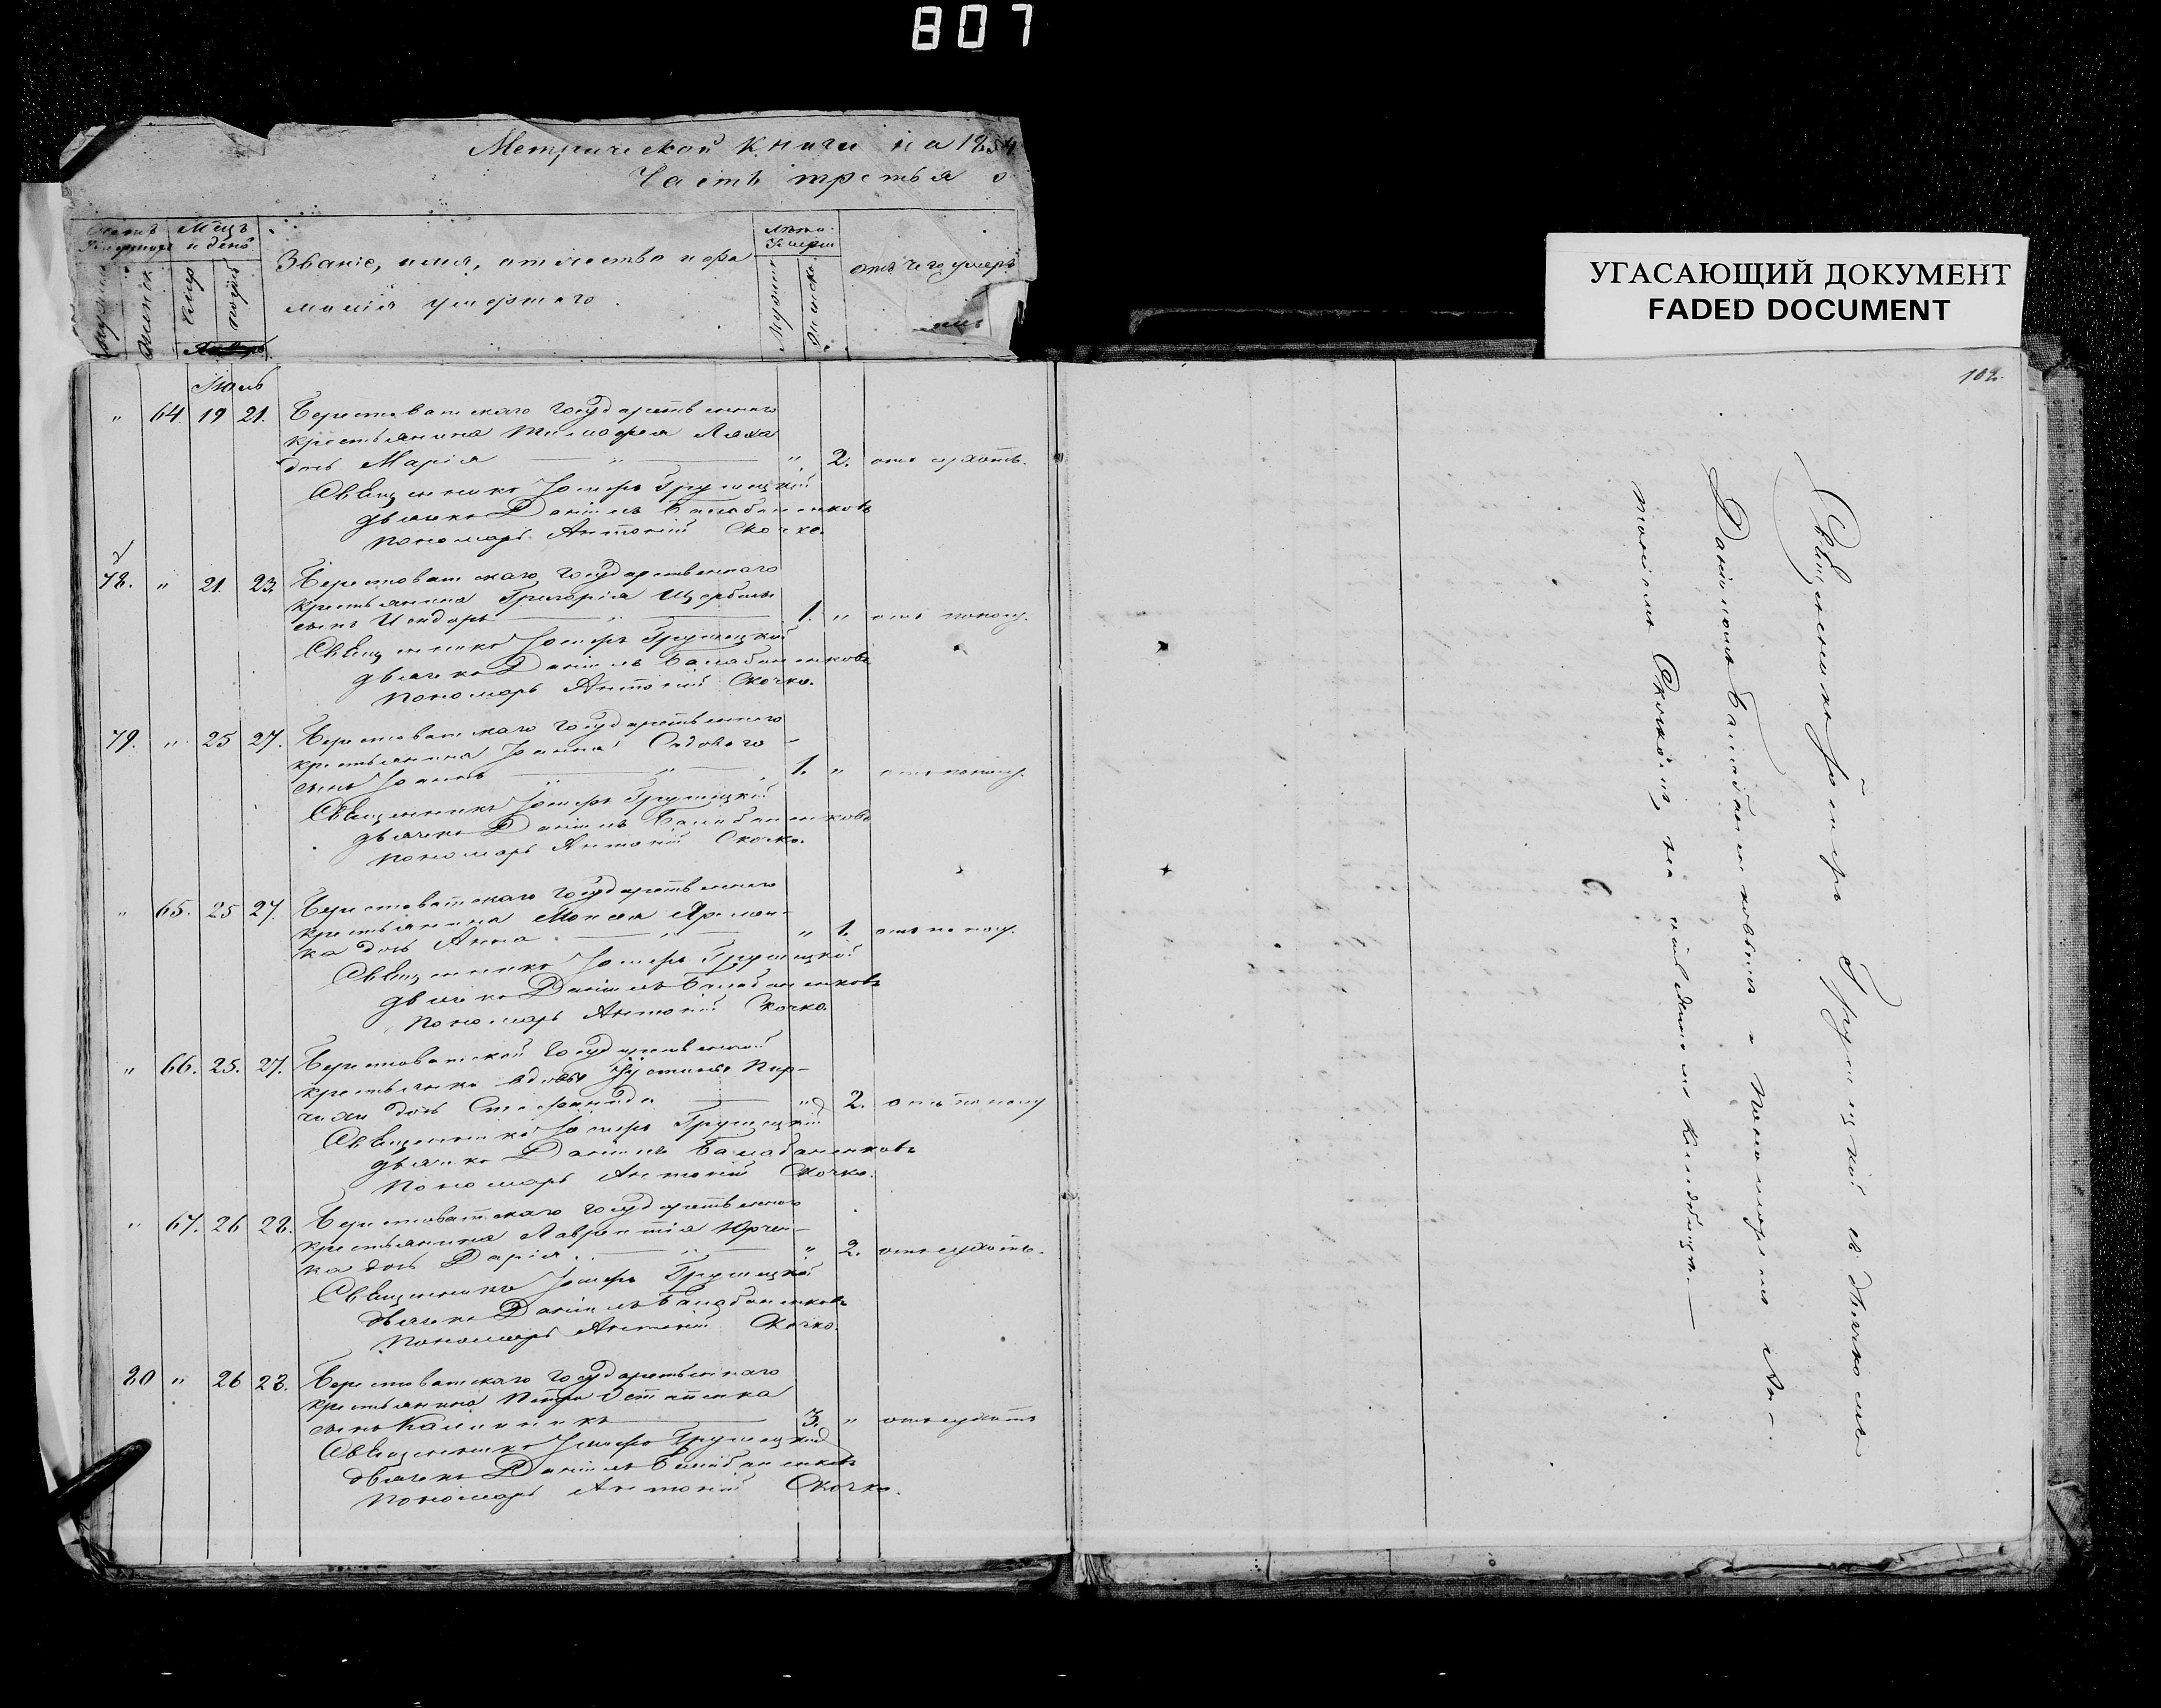 807
Метрической книги на 1854
Часть третья о
Мѣцъ
и день
Званіе, имя, отчество и фа
милія умершаго.
лѣта
умерш
отъ чего умеръ
УГАСАЮЩИЙ ДОКУМЕНТ
FADED DOCUMENT
102.
Іюль
" 64. 19 21. Берестоватскаго государственнаго
крестьянина Тимофея Ляха
дочь Марія " " 2. отъ сухотъ.
Священникъ Іосифъ Грушецкій
дьячекъ Даніилъ Балабаненковъ
пономарь Антоній Скочко.
78. " 21. 23. Берестоватскаго государственнаго
крестьянина Григорія Щербины
сынъ Исидоръ " 1. " отъ поносу.
Священникъ Іосифъ Грушецкій
дьячекъ Даніилъ Балабаненковъ
пономарь Антоній Скочко.
79. " 25 27. Берестоватскаго государственнаго
крестьянина Іоанна
сынъ Іоаннъ " 1. " отъ поносу.
Священникъ Іосифъ Грушецкій
дьячекъ Даніилъ Балабаненковъ
пономарь Антоній Скочко.
" 65. 25 27. Берестоватскаго государственнаго
крестьянина Моисея Яремен-
ка дочь Анна " " 1. отъ поносу.
Священникъ Іосифъ Грушецкій
дьячекъ Даніилъ Балабаненковъ
пономарь Антоній Скочко.
" 66. 25. 27. Берестоватской государственной
крестьянки вдовы Іустины
дочь Стефанида " 2. отъ поносу
Священникъ Іосифъ Грушецкій
дьячекъ Даніилъ Балабаненковъ
пономарь Антоній Скочко.
" 67. 26 28. Берестоватскаго государственнаго
крестьянина Лаврентія Юрчен-
ка дочь Дарія. " " 2. отъ сухотъ.
Священникъ Іосифъ Грушецкій
дьячекъ Даніилъ Балабаненковъ
пономарь Антоній Скочко.
80 " 26 28. Берестоватскаго государственнаго
крестьянина Петра Остапенка
сынъ Каллиникъ 3. " отъ сухотъ
Священникъ Іосифъ Грушецкій
дьячекъ Даніилъ Балабаненковъ
пономарь Антоній Скочко.
Священникъ Іосифъ Грушецкій съ дьячкомъ
Данііломъ Балабаненковымъ и пономаремъ Ан-
тоніемъ Скочкомъ, на кладбищѣ.